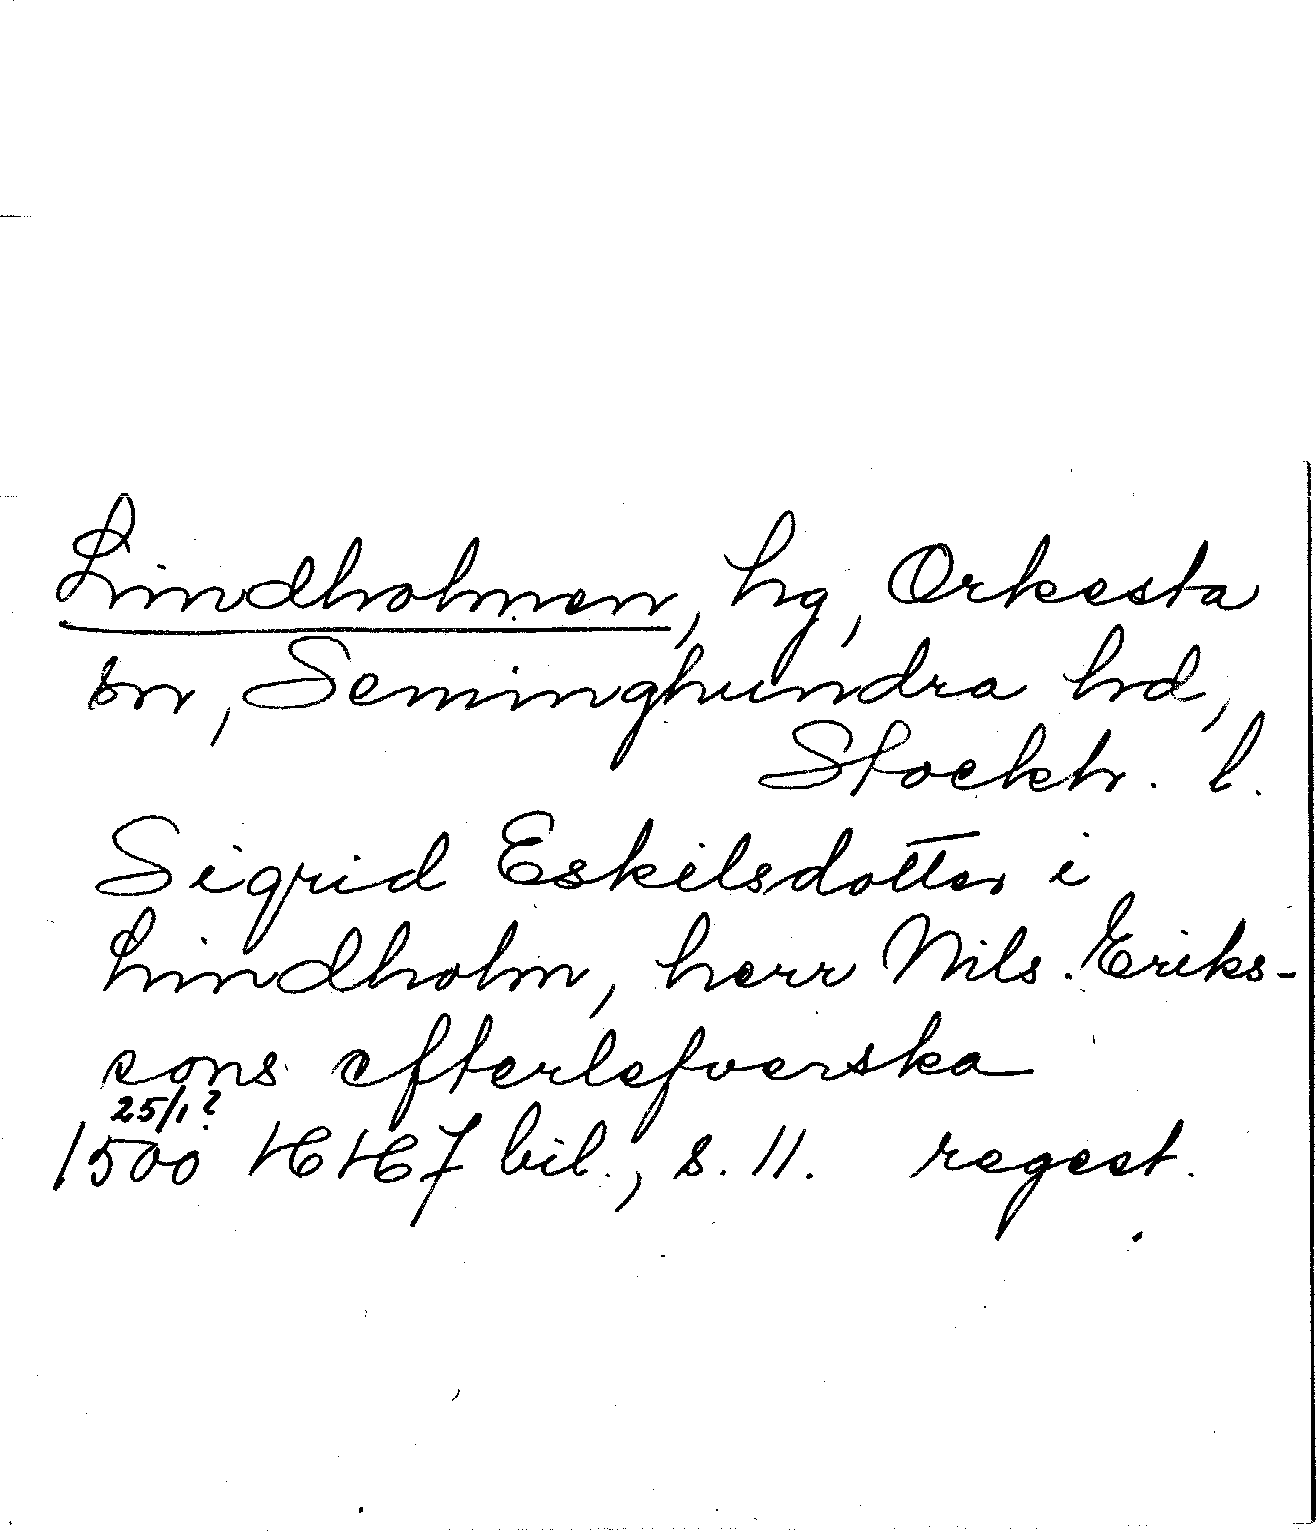 Lindholmen, hg, Orkesta
sn, Seminghundra hd,
Stockh. l.
Sigrid Eskilsdotter i
Lindholm, herr Nils Eriks-
sons efterlefverska
25/1?
1500 HH 7 bil., s. 11. regest.